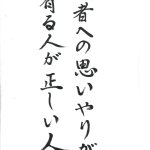 者への思いやりが
有る人が正しい人